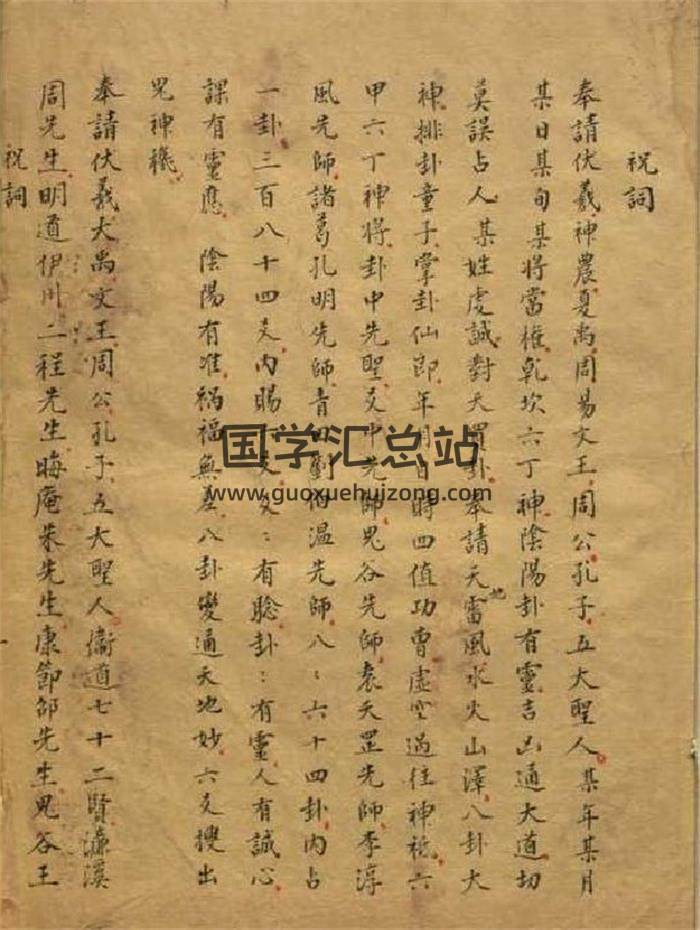 祝詞
奉請伏羲神農夏禹周易文王周公孔子五大聖人某年某月
某日某旬某將當權乾坎六丁神陰陽卦有靈吉凶通大道切
莫誤占人某姓虔誠對天買卦奉請天地雷風水火山澤八卦大
神排卦童子掌卦仙郎年月日時四值功曹虛空過往神祇六
甲六丁神將卦中先聖爻中先師鬼谷先師袁天罡先師李淳
風先師諸葛孔明先師青田劉伯溫先師八〻六十四卦內占
一卦三百八十四爻內賜爻〻有驗卦〻有靈人有誠心
課有靈應陰陽有准禍福無差八卦變通天地妙六爻搜出
鬼神機
奉請伏羲大禹文王周公孔子五大聖人衛道七十二賢濂溪
周先生明道伊川二程先生晦庵朱先生康節邵先生鬼谷王
祝詞
国学汇总站
www.guoxuehuizong.com